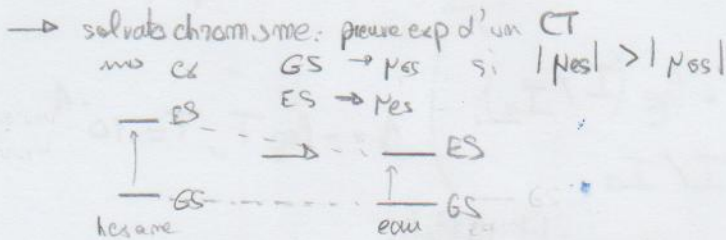 → solvatochromisme : preuve exp d'un CT
GS → μGS si |μES| > |μGS|
ES → μES
ES → ES
GS GS
hexane eau